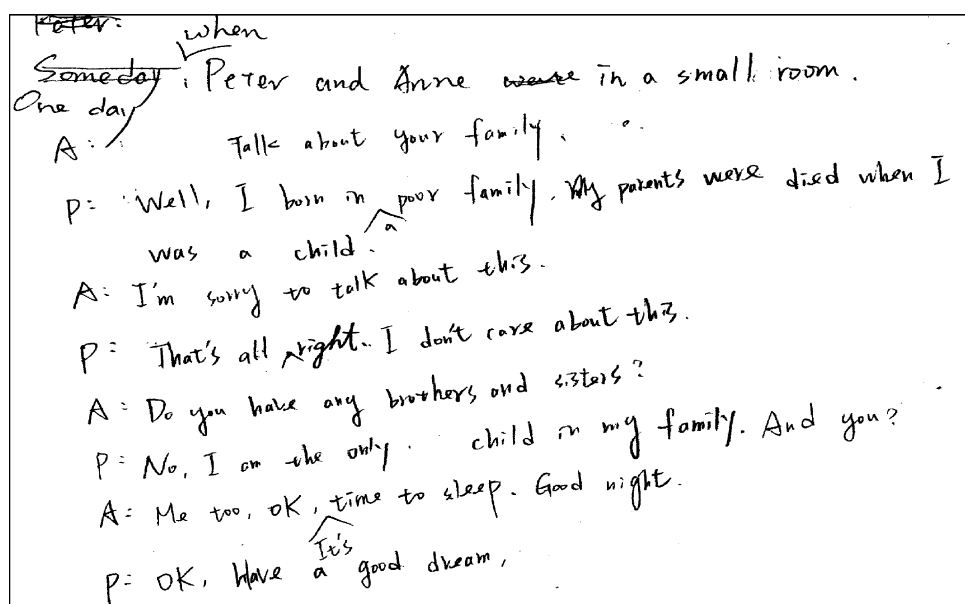 Peter:
when
Someday : Peter and Anne were in a small room.
One day
A: Talk about your family.
P: Well, I born in poor family. My parents were died when I
a
was a child.
A: I'm sorry to talk about this.
P: That's all right. I don't care about this.
A: Do you have any brothers and sisters?
P: No, I am the only. child in my family. And you?
A: Me too, OK, time to sleep. Good night.
It's
P: OK, Have a good dream,